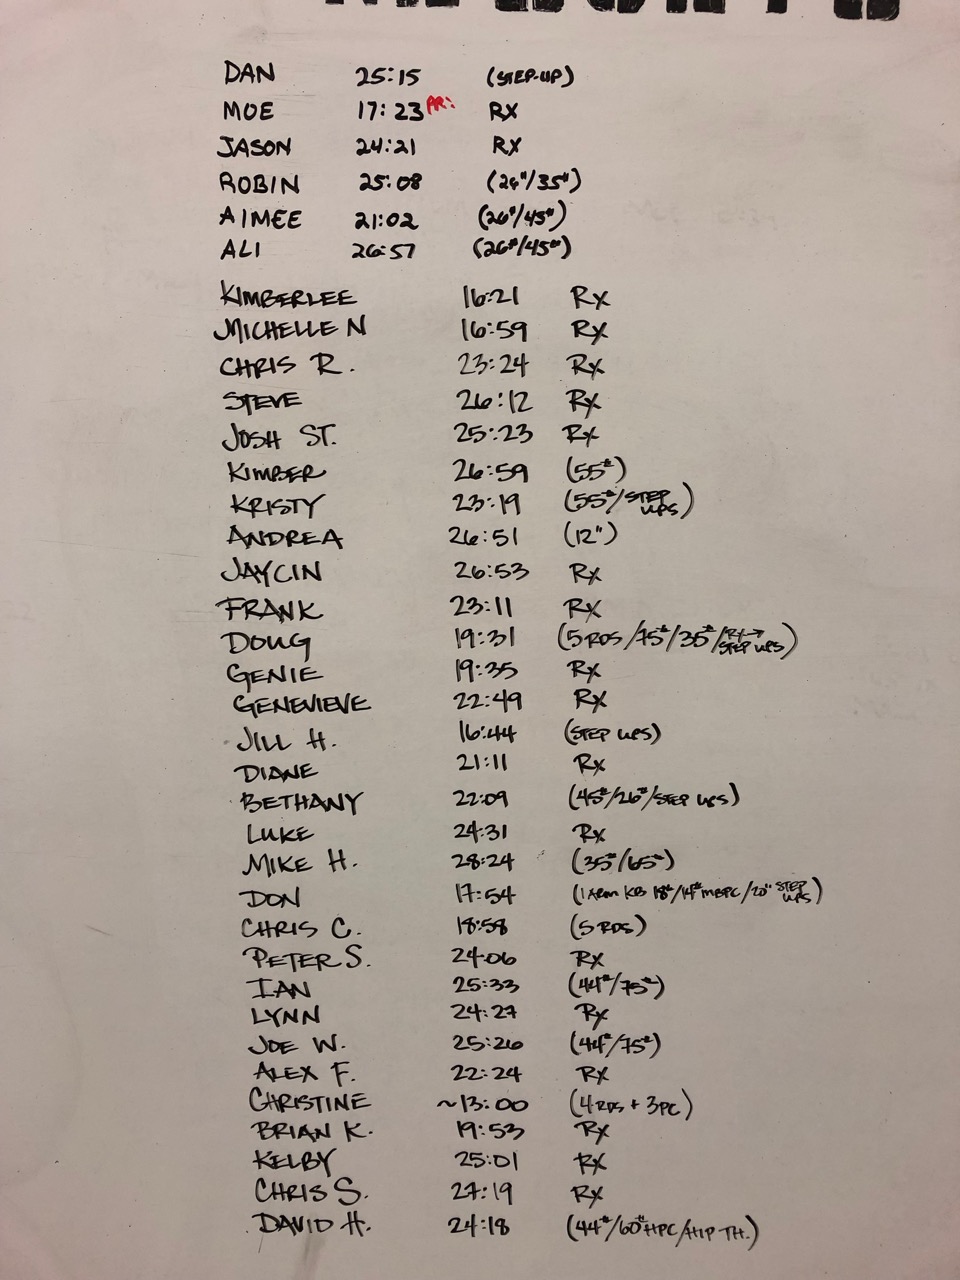 DAN 25:15 (STEP-UP)
MOE 17:23 PR! RX
JASON 24:21 RX
ROBIN 25:08 (26#/35#)
AIMEE 21:02 (26#/45#)
ALI 26:57 (26#/45#)
KIMBERLEE 16:21 Rx
MICHELLE N 16:59 Rx
CHRIS R. 23:24 Rx
STEVE 26:12 Rx
JOSH ST. 25:23 Rx
KIMBER 26:59 (55#)
KRISTY 23:19 (55#/STEP UPS)
ANDREA 26:51 (12")
JAYCIN 26:53 Rx
FRANK 23:11 Rx
DOUG 19:31 (5 RDS/75#/35#/Rx→STEP UPS)
GENIE 19:35 Rx
GENEVIEVE 22:49 Rx
JILL H. 16:44 (STEP UPS)
DIANE 21:11 Rx
BETHANY 22:09 (45#/26#/STEP UPS)
LUKE 24:31 Rx
MIKE H. 28:24 (35#/65#)
DON 17:54 (1 ARM KB 18#/14# MBPC/20" STEP UPS)
CHRIS C. 18:58 (5 RDS)
PETER S. 24:06 Rx
IAN 25:33 (44#/75#)
LYNN 24:27 Rx
JOE W. 25:26 (44#/75#)
ALEX F. 22:24 Rx
CHRISTINE ~13:00 (4 RDS + 3PC)
BRIAN K. 19:53 Rx
KELBY 25:01 Rx
CHRIS S. 27:19 Rx
DAVID H. 24:18 (44#/60# HPC/HIP TH.)